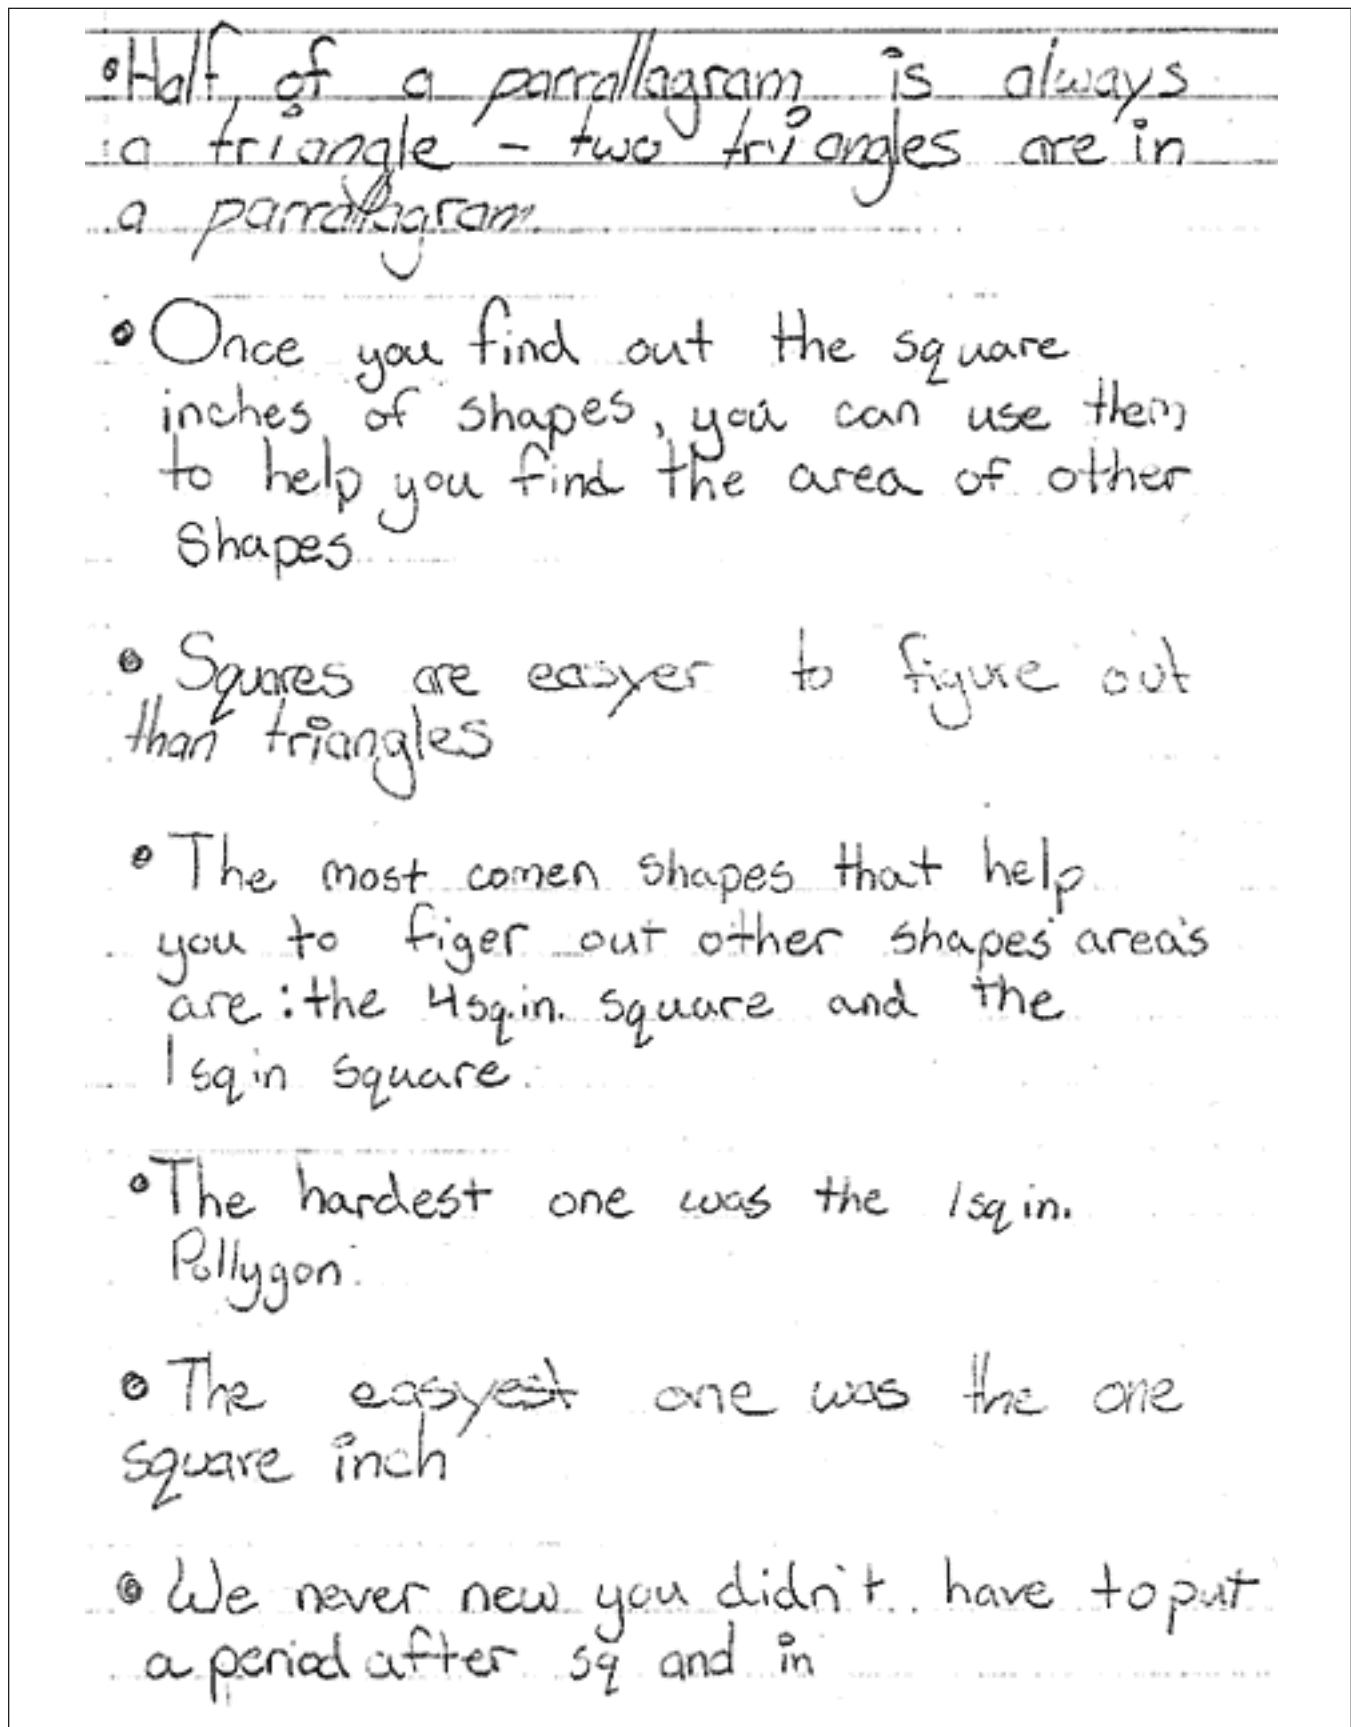 • Half of a parrallagram is always
a triangle - two triangles are in
a parrallagram.
• Once you find out the square
inches of shapes, you can use them
to help you find the area of other
shapes
• Squares are easyer to figure out
than triangles
• The most comen shapes that help
you to figer out other shapes area's
are: the 4 sq.in. square and the
1 sq in square.
• The hardest one was the 1 sq in.
Pollygon.
• The easyest one was the one
square inch
• We never new you didn't have to put
a period after sq and in